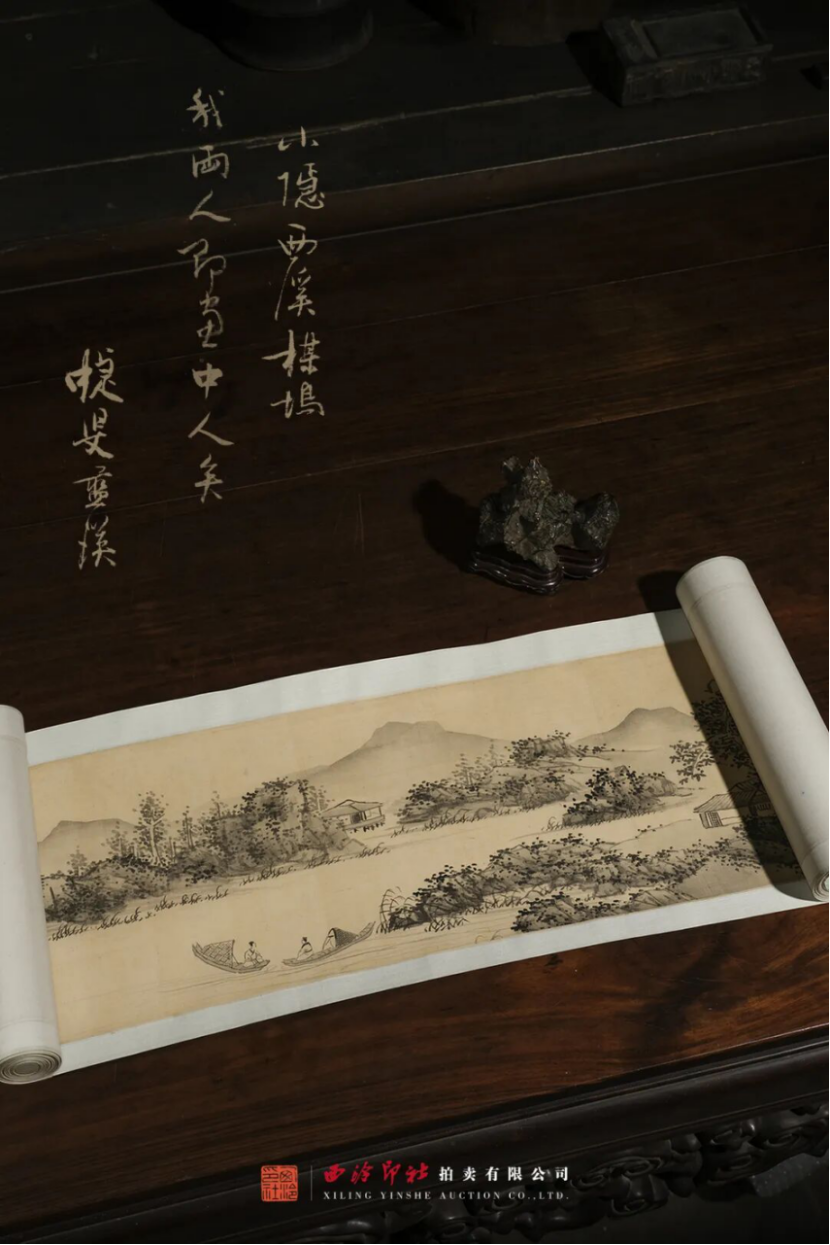 小隱西溪楳塢
我兩人即畫中人矣
蜨叟藍瑛
西泠印社
西泠印社拍卖有限公司
XILING YINSHE AUCTION CO.,LTD.